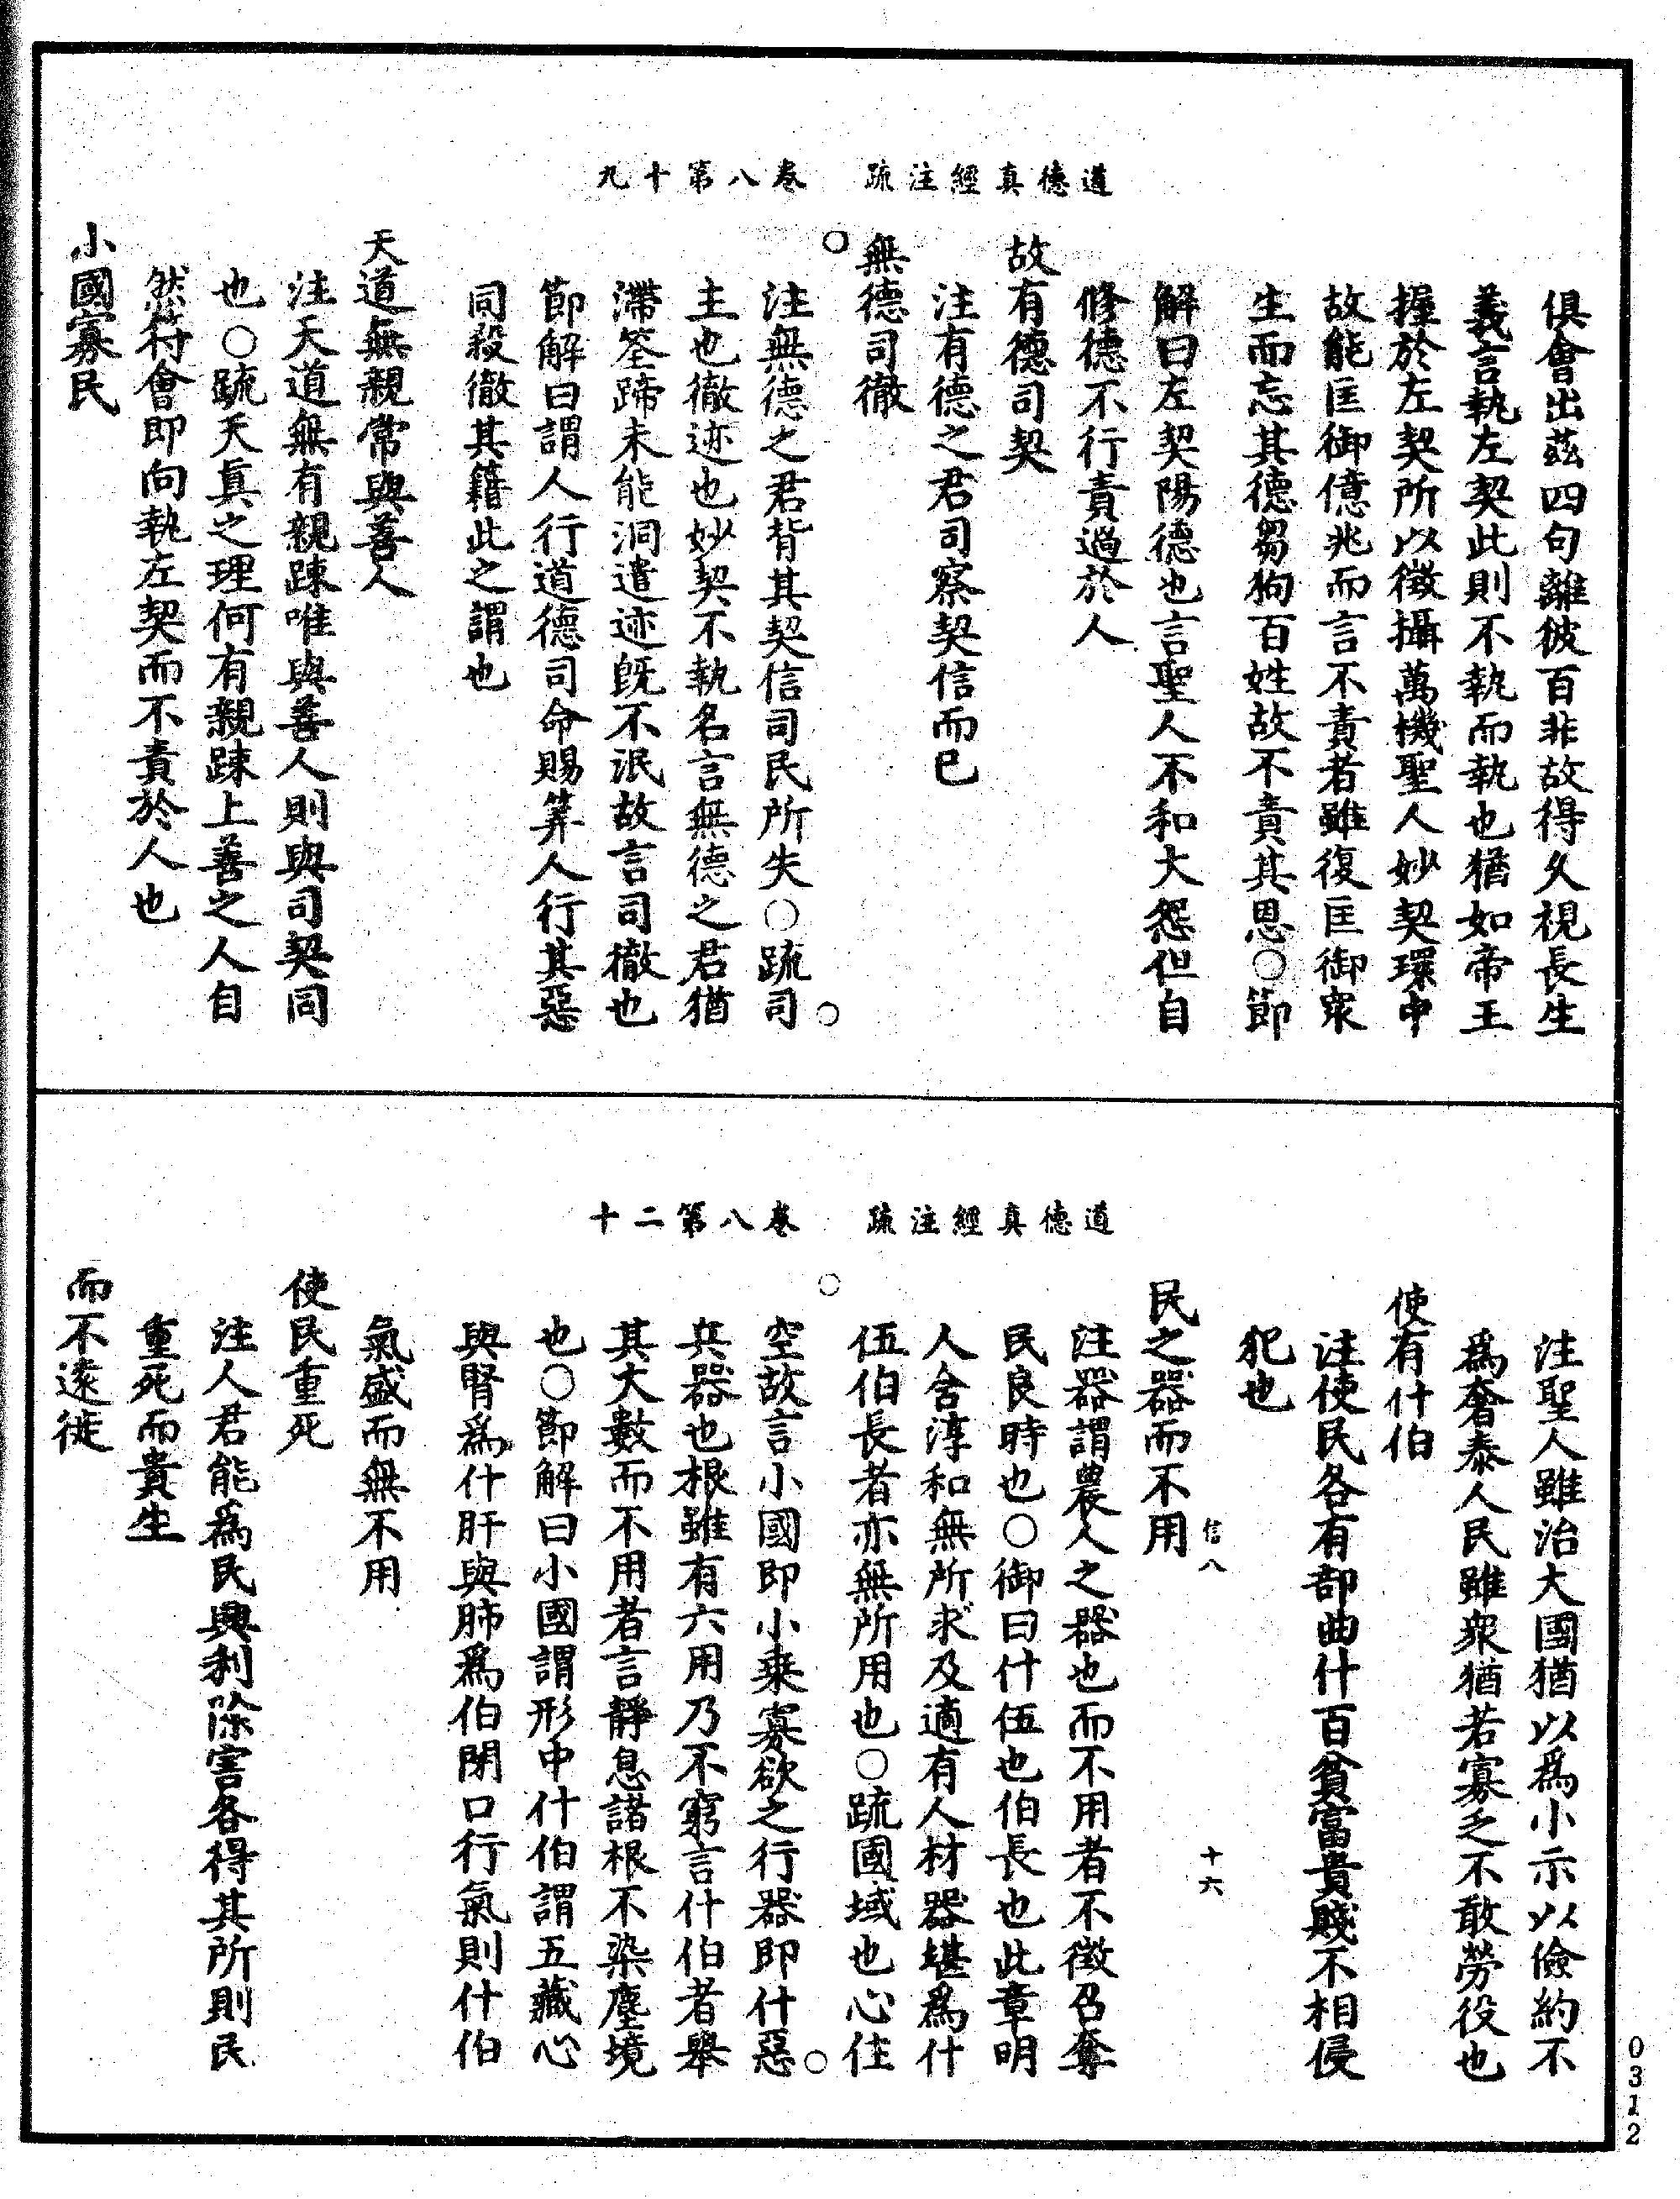 道德真經注疏　卷八第十九
俱會出茲四句離彼百非故得久視長生
義言執左契此則不執而執也猶如帝王
握於左契所以徵攝萬機聖人妙契環中
故能匡御億兆而言不責者雖復匡御衆
生而忘其德芻狗百姓故不責其恩○節
解曰左契陽德也言聖人不和大怨但自
修德不行責過於人
故有德司契
注有德之君司察契信而已
無德司徹
注無德之君背其契信司民所失○疏司
主也徹迹也妙契不執名言無德之君猶
滯筌蹄未能洞遣迹既不泯故言司徹也
節解曰謂人行道德司命賜筭人行其惡
同殺徹其籍此之謂也
天道無親常與善人
注天道無有親踈唯與善人則與司契同
也○疏天真之理何有親踈上善之人自
然符會即向執左契而不責於人也
小國寡民
道德真經注疏　卷八第二十
注聖人雖治大國猶以爲小示以儉約不
爲奢泰人民雖衆猶若寡乏不敢勞役也
使有什伯
注使民各有部曲什百貧富貴賤不相侵
犯也
信八　十六
民之器而不用
注器謂農人之器也而不用者不徵召奪
民良時也○御曰什伍也伯長也此章明
人含淳和無所求及適有人材器堪爲什
伍伯長者亦無所用也○疏國域也心住
空故言小國即小乗寡欲之行器即什惡
兵器也根雖有六用乃不窮言什伯者舉
其大數而不用者言靜息諸根不染塵境
也○節解曰小國謂形中什伯謂五藏心
與腎爲什肝與肺爲伯閉口行氣則什伯
氣盛而無不用
使民重死
注人君能爲民興利除害各得其所則民
重死而貴生
而不遠徙
0312